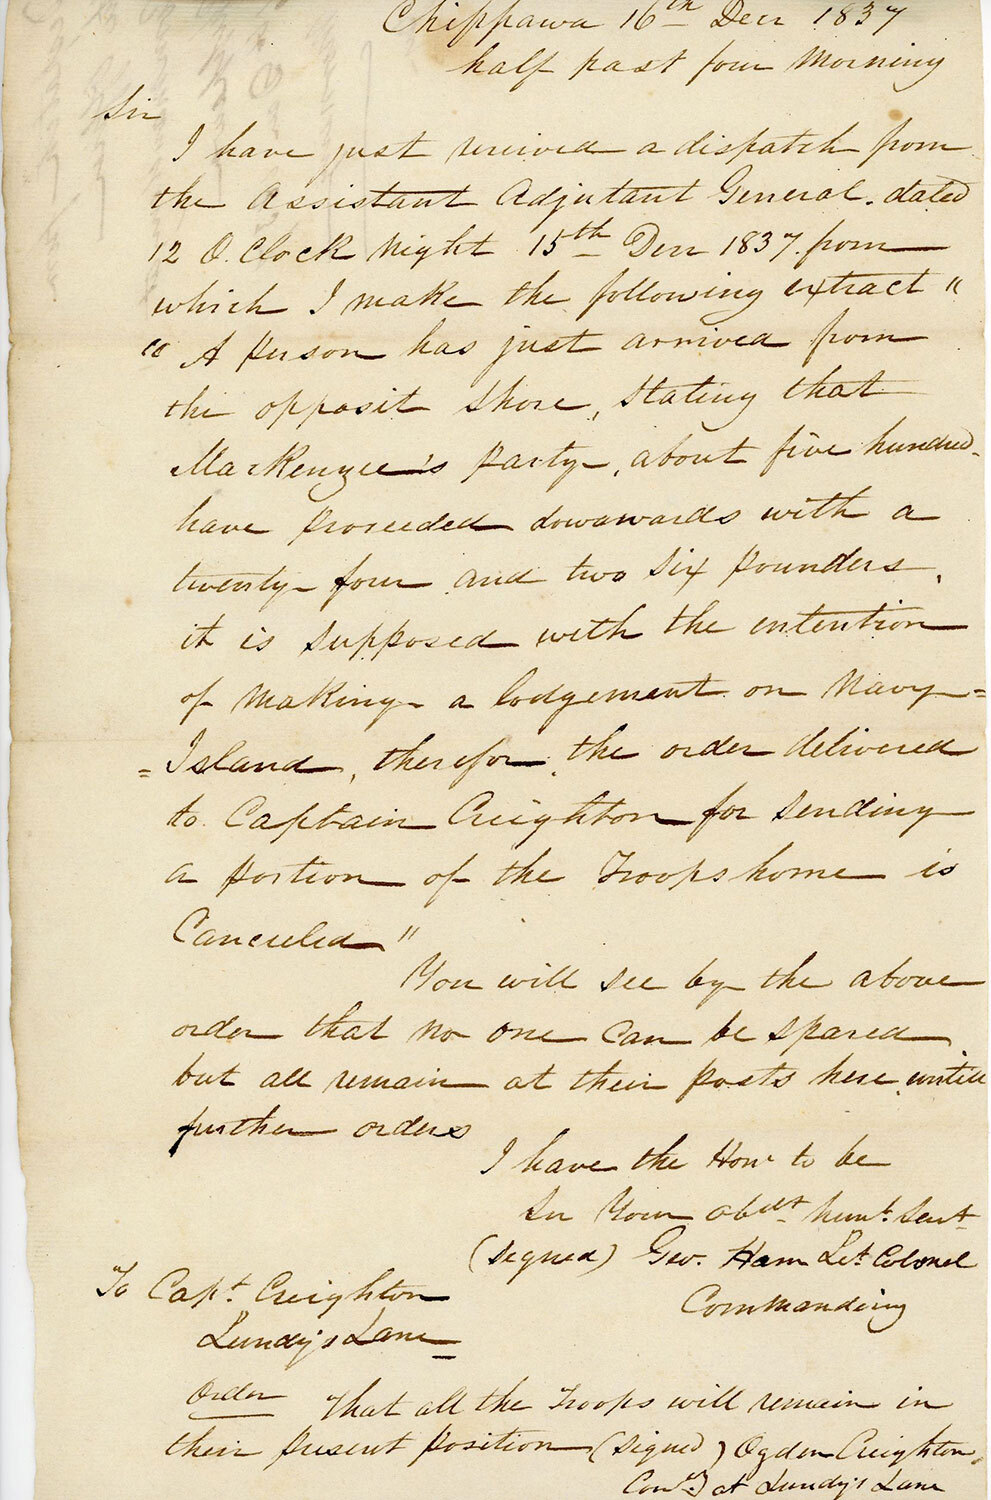 Chippawa 16th Decr 1837
half past four Morning
Sir
I have just received a dispatch from
the Assistant Adjutant General. dated
12 O.Clock Night 15th Decr 1837. from
which I make the following extract "
" A person has just arrived from
the opposit shore, stating that
MacKenzee's party, about five hundred
have proceeded downwards with a
twenty-four and two six pounders,
it is supposed with the intention
of making a lodgement on Navy=
=Island, therefor, the order delivered
to Captain Creighton for sending
a portion of the Troops home is
Canceled"
You will see by the above
order that no one can be spared
but all remain at their posts here untill
further orders
I have the Honr to be
Sir Your obedt humt. Sert
(signed) Geo. Ham Lt. Colonel
Commanding
To Capt. Creighton
Lundy's Lane
Order That all the Troops will remain in
their present position (signed) Ogden Creighton,
at Lundy's Lane